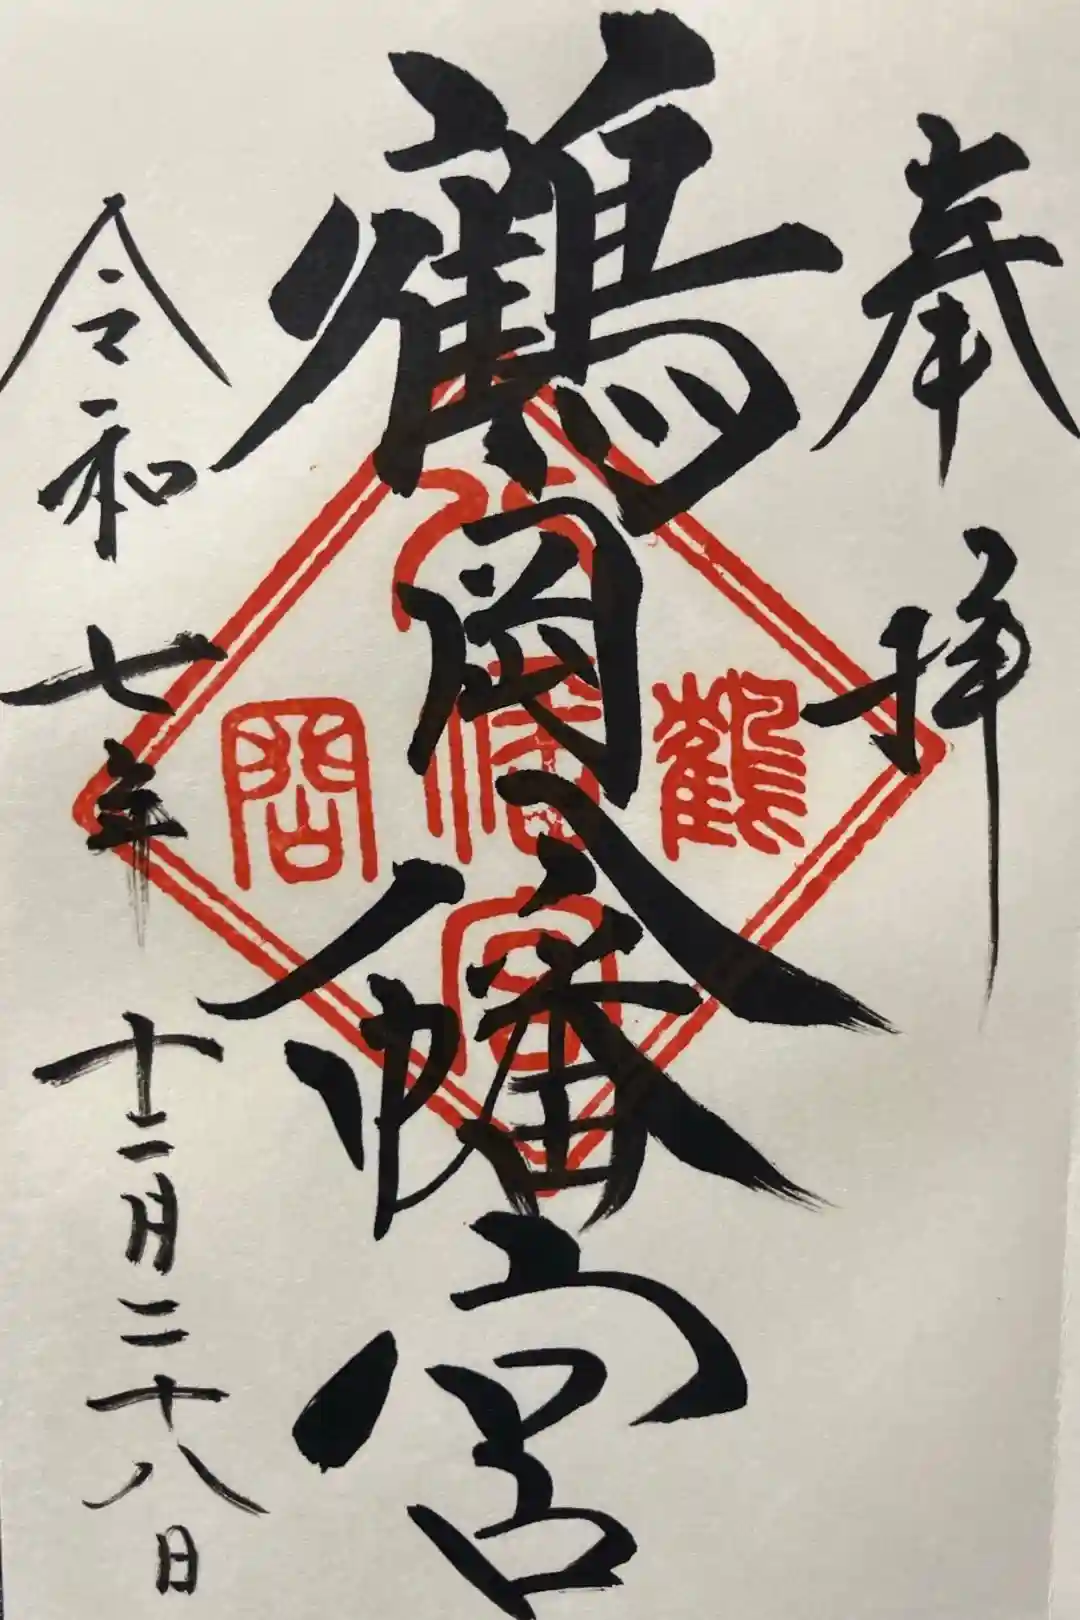 奉拝
鶴岡八幡宮
鶴岡八幡宮
令和七年十二月二十八日